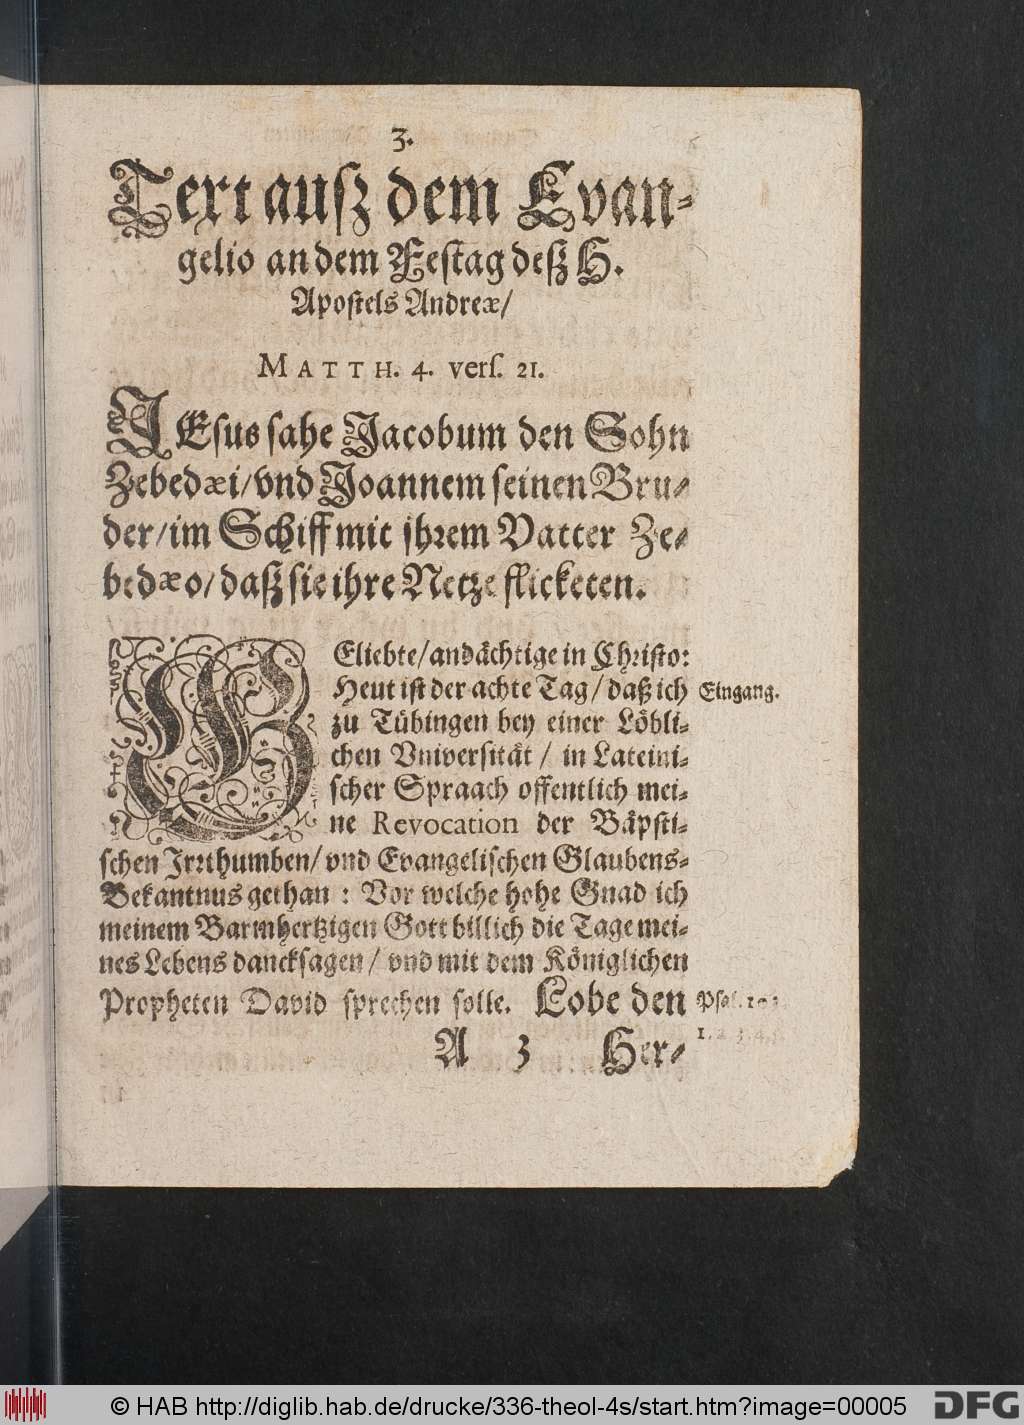 3.
Text ausz dem Evan-
gelio an dem Festag desz H.
Apostels Andreæ/
MATTH. 4. vers. 21.
JEsus sahe Jacobum den Sohn
Zebedæi/ vnd Joannem seinen Bru-
der/ im Schiff mit jhrem Vatter Ze-
bedæo/ dasz sie ihre Netze flicketen.
GEliebte/ andächtige in Christo:
Heut ist der achte Tag/ dasz ich
Eingang.
zu Tübingen bey einer Löbli-
chen Vniversität/ in Lateini-
scher Spraach offentlich mei-
ne Revocation der Bäpsti-
schen Irrthumben/ vnd Evangelischen Glaubens-
Bekantnus gethan: Vor welche hohe Gnad ich
meinem Barmhertzigen Gott billich die Tage mei-
nes Lebens dancksagen/ vnd mit dem Königlichen
Propheten David sprechen solle. Lobe den
1. 2. 3. 4.
A 3 Her-
© HAB http://diglib.hab.de/drucke/336-theol-4s/start.htm?image=00005
DFG